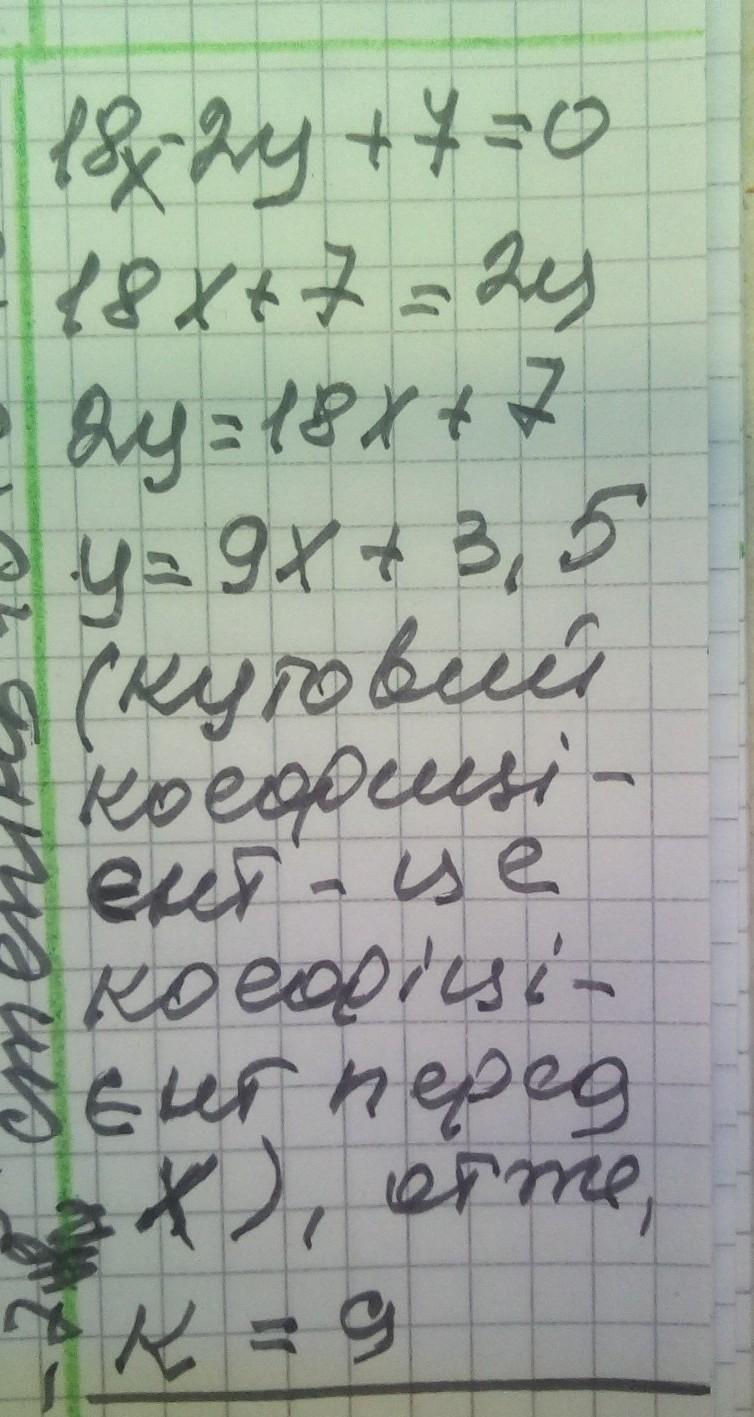 18x-2y+7=0
18x+7=2y
2y=18x+7
y=9x+3,5
(кутовий
коефіці-
єнт-це
коефіці-
єнт перед
x), отже,
к=9